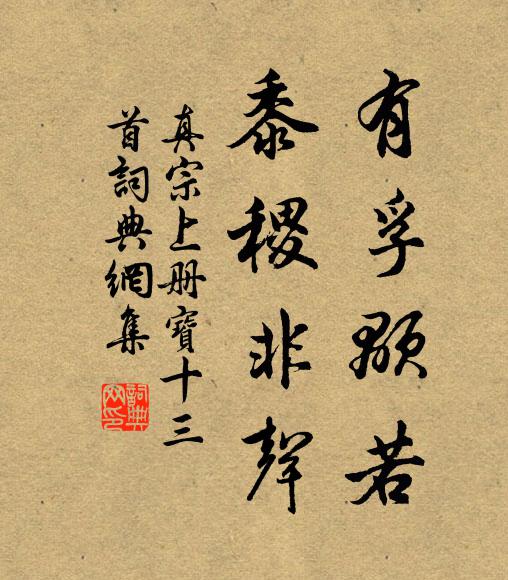 有孚顒若
黍稷非聲
真宗上册寶十三
首詞典網集
詞典网印